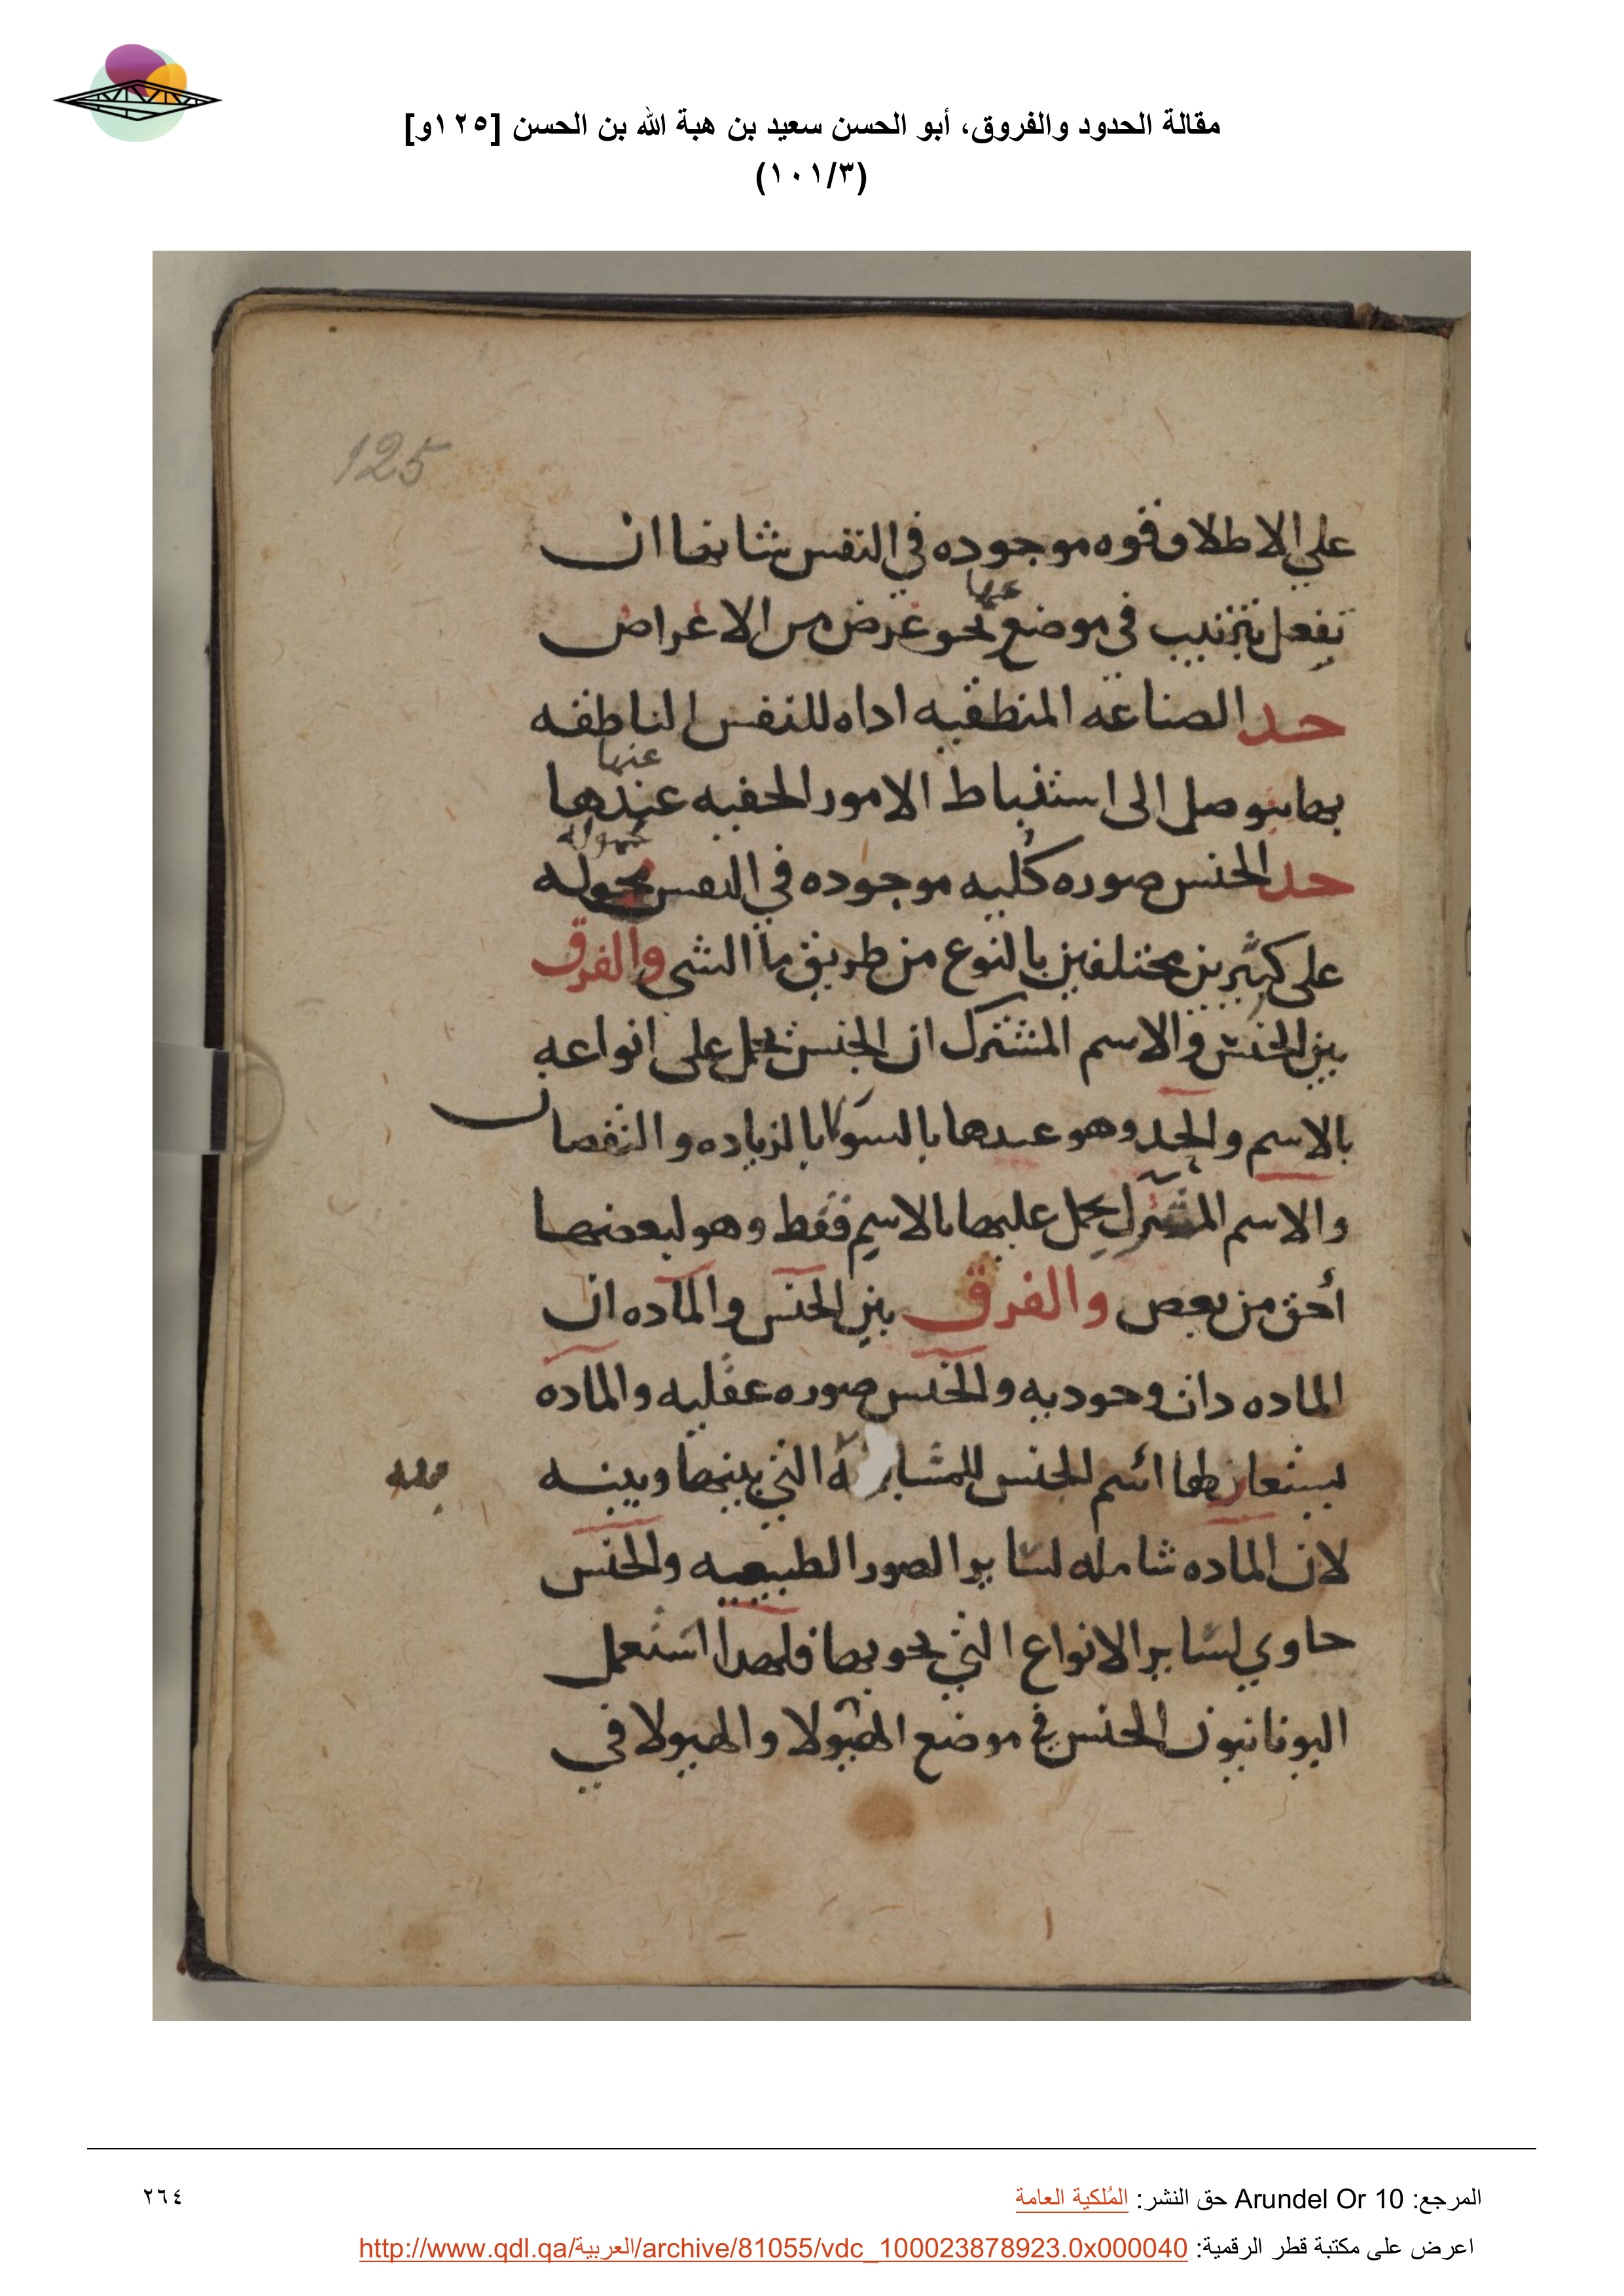 مقالة الحدود والفروق، أبو الحسن سعيد بن هبة الله بن الحسن [١٢٥و]
(١٠١/٣)
125
على الاطلاق قوه موجوده في النفس شانها ان
تفعل بترتيب في موضوع نحو غرض من الاغراض
حد الصناعه المنطقيه اداه للنفس الناطقه
عنها
بها يتوصل الى استنباط الامور الخفيه عندها
محموله
حد الجنس صوره كليه موجوده في النفس محموله
على كثيرين مختلفين بالنوع من طريق ما الشي والفرق
بين الجنس والاسم المشترك ان الجنس يحمل على انواعه
بالاسم والحد وهو عندها بالسوا لا بالزياده والنقصان
والاسم المشترك يحمل عليها بالاسم فقط وهو لبعضها
أحق من بعض والفرق بين الجنس والماده ان
الماده ذات وجوديه والجنس صوره عقليه والماده
يستعار لها اسم الجنس للمشابهة التي بينها وبينه
لان الماده شامله لساير الصور الطبيعيه والجنس
حاوي لساير الانواع التي يحويها فلهذا استعمل
اليونانيون الجنس في موضع الهيولا والهيولا في
المرجع: Arundel Or 10 حق النشر: المُلكية العامة
٢٦٤
اعرض على مكتبة قطر الرقمية: http://www.qdl.qa/العربية/archive/81055/vdc_100023878923.0x000040